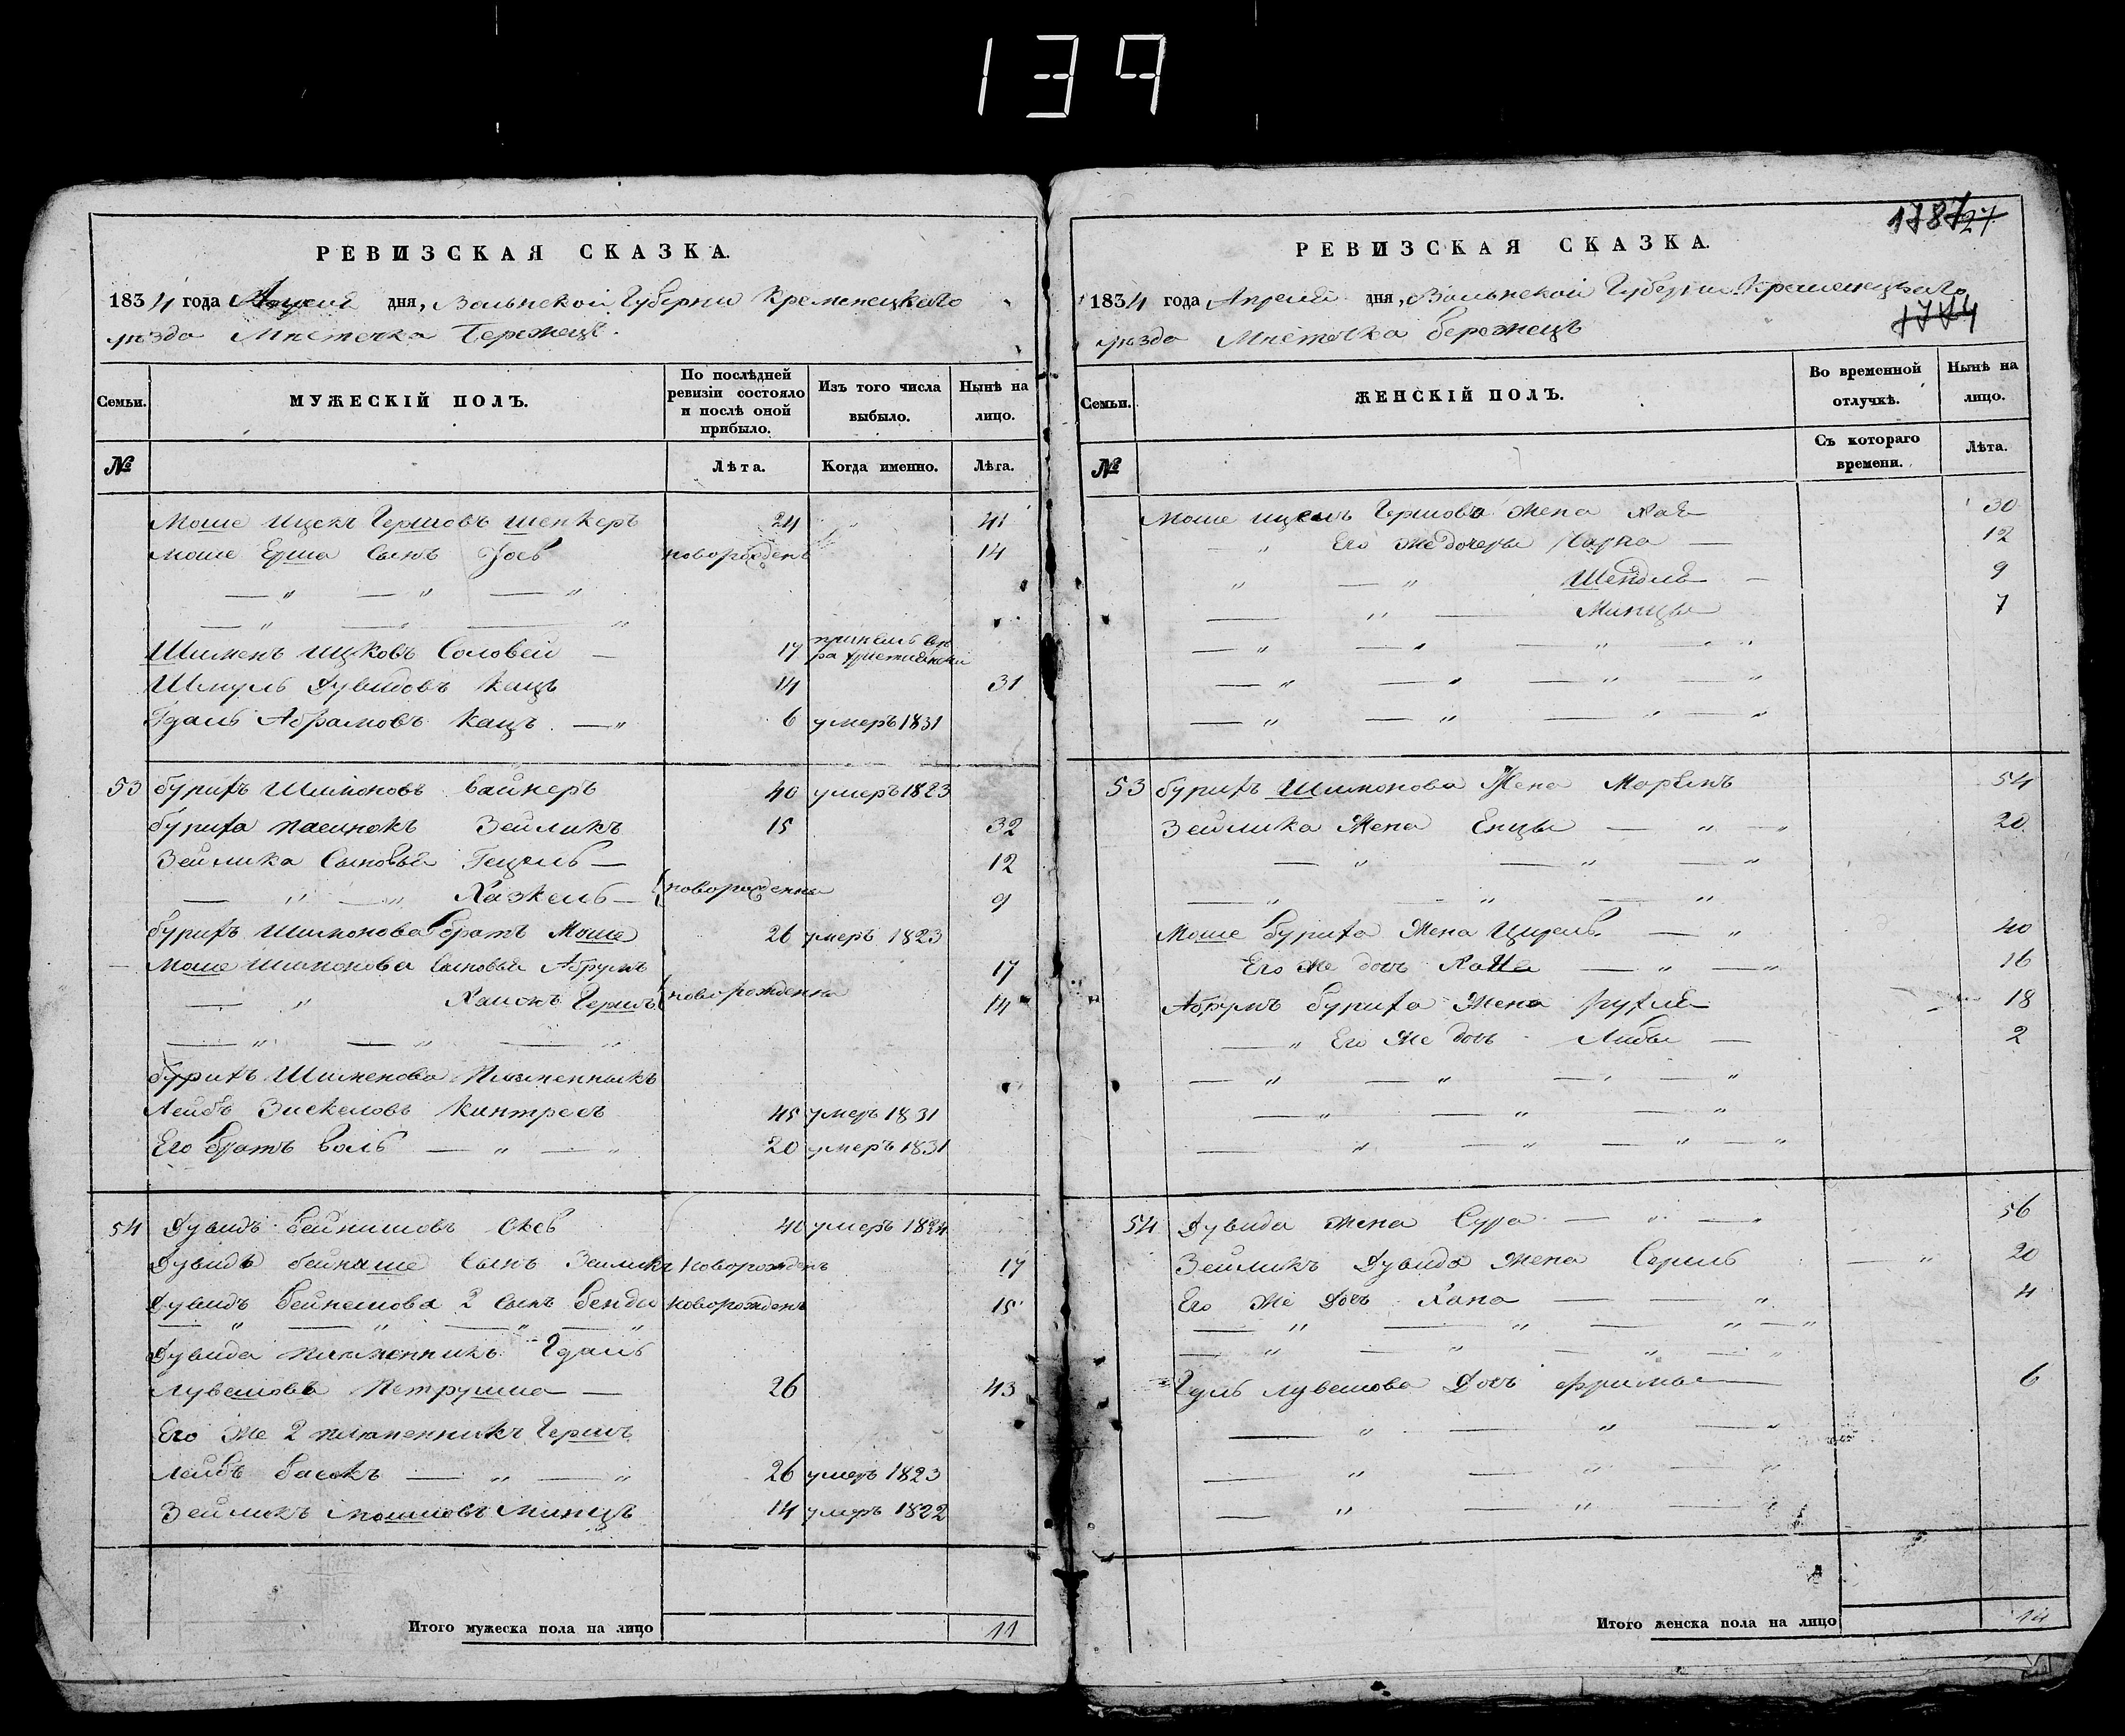 139
РЕВИЗСКАЯ СКАЗКА.
1834 года Апреля дня, Волынской Губерни Кременецкаго
уезда Местечка Бережецъ.
Семьи.
МУЖЕСКІЙ ПОЛЪ.
По послѣдней ревизіи состояло и послѣ оной прибыло.
Изъ того числа выбыло.
Нынѣ на лицо.
№
Лѣта.
Когда именно.
Лѣта.
Моше Ицекъ Гершовъ Шенкеръ 24 41
Моше Ерша Сынъ новорожденъ 14
Шименъ Ицковъ Соловей 17
Шмуль Дувидовъ Кацъ 14 31
Гдаль Абрамовъ Кацъ 6 умеръ 1831
53 Бурихъ Шимоновъ Вайнеръ 40 умеръ 1823
Буриха Пасынокъ Зейликъ 15 32
Зейлика Сыновья Гецель 12
Хазкель новорожденны 9
Бурихъ Шимонова братъ Моше 26 умеръ 1823
Моше Шимонова Сыновья Абрумъ 17
Хаимъ Гершъ новорожденны 14
Бурихъ Шименова Племенникъ
Лейбъ Зискеловъ Кинтресъ 45 умеръ 1831
Его братъ Воль 20 умеръ 1831
54 Дувидъ Бейнишовъ 40 умеръ 1824
Дувидъ Бейнише Сынъ Зейликъ новорожденъ 17
Дувидъ Бейнешова 2 Сынъ Бенда новорожденъ 15
Дувида племенникъ Гдаль
Петрушка 26 43
Его же 2 племенникъ Гершъ
Лейбъ Басокъ 26 умеръ 1823
Зейликъ Мошковъ Минцъ 14 умеръ 1822
Итого мужеска пола на лицо 11
РЕВИЗСКАЯ СКАЗКА.
1787
27
1834 года Апреля дня, Волынской Губерни Кременецкаго
уезда Местечка Бережецъ
Семьи.
ЖЕНСКІЙ ПОЛЪ.
Во временной отлучкѣ.
Нынѣ на лицо.
№
Съ котораго времени.
Лѣта.
Моше Ицекъ Гершова Жена Хая 30
Его же дочеры 12
Шендля 9
Минцы 7
53 Бурихъ Шимонова Жена 54
Зейлика Жена Енцы 20
Моше Буриха Жена 40
Его же дочъ 16
Абрумъ Буриха Жена Рухля 18
Его же дочъ Либы 2
54 Дувида жена Сура 56
Зейликъ Дувида жена Серль 20
Его же Дочъ Хана 4
Дочъ Фримы 6
Итого женска пола на лицо